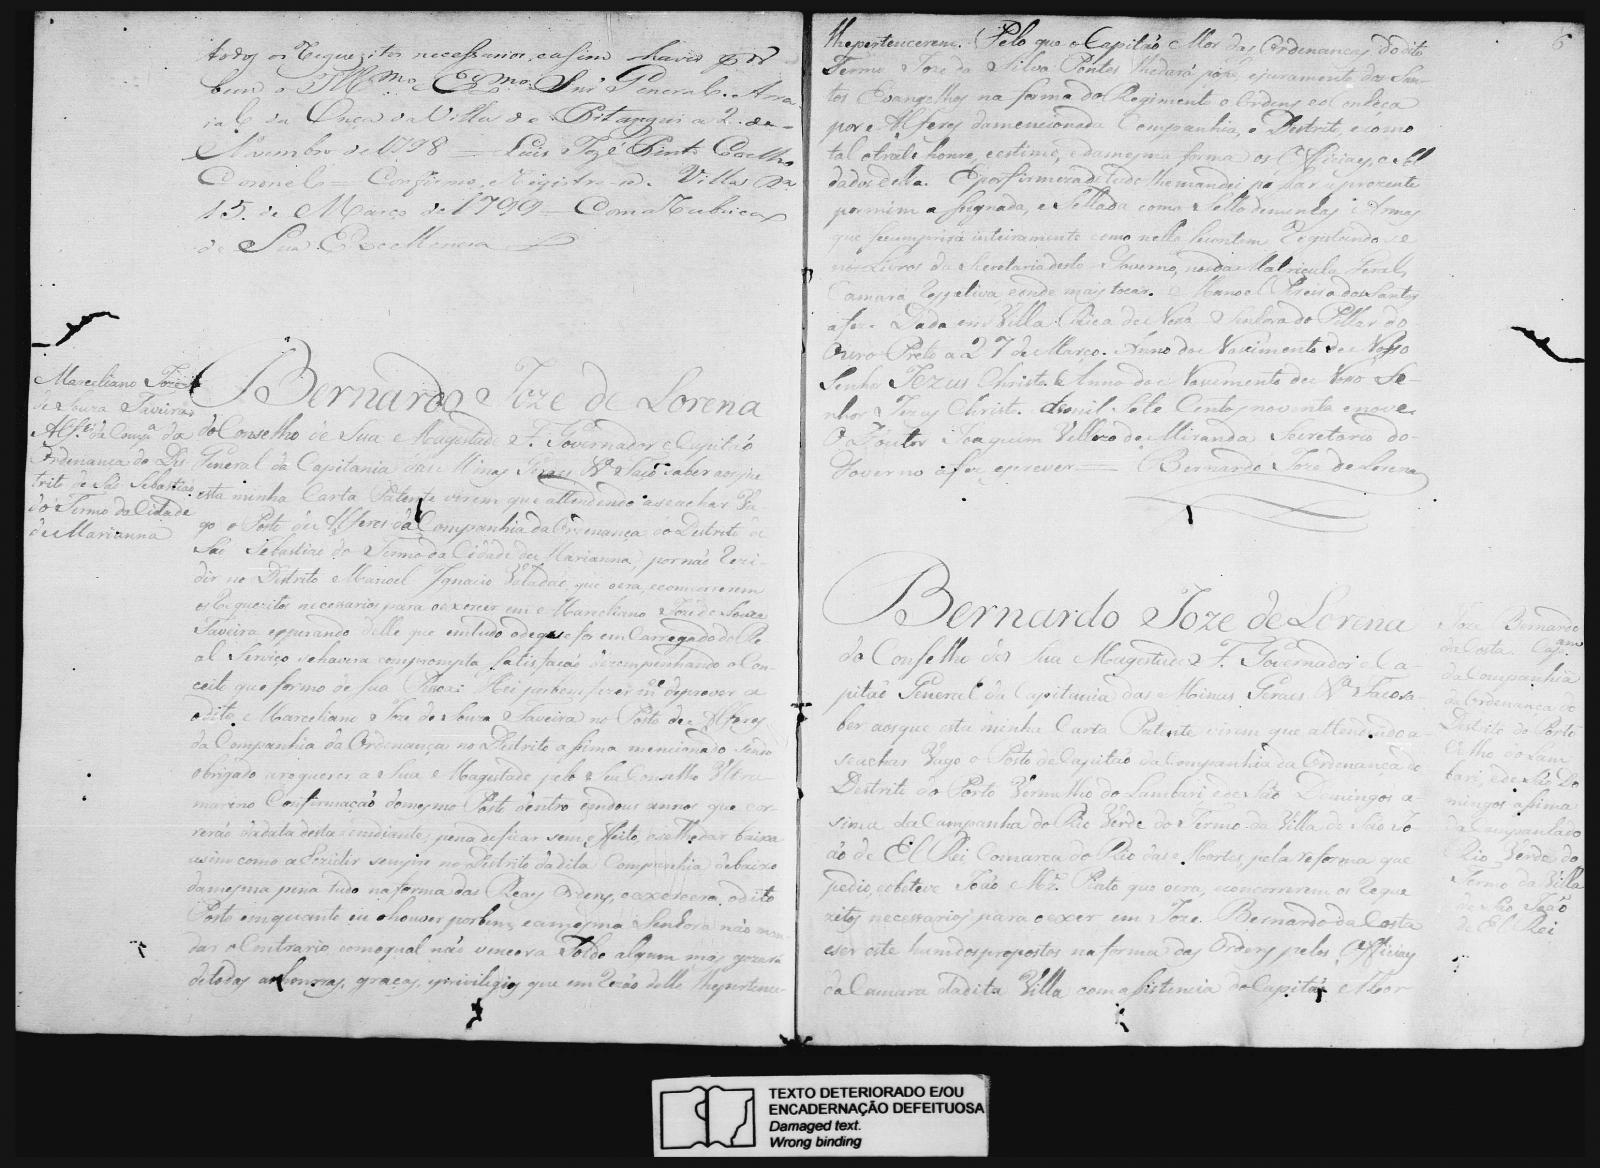 todos os Requezitos necessarios, e asim haver por
bem o Illmo. e Exmo. Snr General. Arra-
ial da Onça da Villa de Pitangui a 2 de
Novembro de 1798 = Luis Jozé Pinto Coelho
Coronel = Confirmo, e Registre-se. Villa Ra
15 de Março de 1799 = Com a Rubrica
de Sua Excellencia
Marceliano Joze
de Souza Taveira
Alfes. da Compa. da
Ordenança do Dis
trito de São Sebastião
do Termo da Cidade
de Marianna
Bernardo Joze de Lorena
do Conselho de Sua Magestade F. Governador e Capitão
General da Capitania das Minas Geraes Na Faço saber aos que
esta minha Carta Patente virem que attendendo a se achar Va
go o Posto de Alferes da Companhia da Ordenança do Destrito de
São Sebastião do Termo da Cidade de Marianna, por não Rezi-
dir no Destrito Manoel Ignacio Valadão que o era, e concorrerem
os Requezitos necessarios para o exercer em Marceliano Joze de Souza
Taveira esperando delle que em tudo o de que for em Carregado do Re
al Serviço se havera com prompta satisfação dezempenhando o Con-
ceito que formo de sua Pessoa: Hei por bem fazer mce. de prover ao
dito Marceliano Joze de Souza Taveira no Posto de Alferes
da Companhia da Ordenança no Destrito assima mencionado sendo
obrigado a requerer a Sua Magestade pelo Seu Conselho Ultra-
marino Confirmação do mesmo Posto dentro em dous annos que cor-
rerão da data desta em diante, pena de ficar sem effeito, e se lhe dar baixa
asim como a Rezidir sempre no Destrito da dita Companhia debaixo
da mesma pena tudo na forma das Reaes Ordens, e exercera o dito
Posto em quanto eu o houver por bem, e a mesma Senhora não man
dar o Contrario, com o qual não vencera Soldo algum mas gozará
de todas as honras, graças, e privilegios que em Rezão delle lhe pertence-
6
lhe pertencerem. Pelo que o Capitão Mor das Ordenanças do dito
Termo Joze da Silva Pontes lhe dará posse, e juramento dos San-
tos Evangelhos na forma do Regimento e Ordens e o Conheça
por Alferes da mencionada Companhia, e Destrito, e como
tal o trate honre, e estime, e da mesma forma os Officiaes, e Sol
dados della. E por firmeza de tudo lhe mandei passar a prezente
por mim assignada, e Sellada com o Sello de minhas Armas
que se cumprirá inteiramente como nella se contem Registando-se
nos Livros da Secretaria deste Governo, nos da Matricula Geral,
Camara respetiva, e onde mais tocar. Manoel Pereira dos Santos
a fez. Dada em Villa Rica de Nossa Senhora do Pillar do
Ouro Preto a 27 de Março. Anno do Nascimento de Nosso
Senhor Jezus Christo. Anno do Nascimento de Nosso Se-
nhor Jezus Christo. de mil Sete Centos noventa e nove.
O Doutor Joaquim Vellozo de Miranda Secretario do
Governo a fez escrever = Bernardo Joze de Lorena
Bernardo Joze de Lorena
do Conselho de Sua Magestade F. Governador e Ca-
pitão General da Capitania das Minas Geraes Na. Faço sa-
ber aos que esta minha Carta Patente virem que attendendo a
se achar Vago o Posto de Capitão da Companhia da Ordenança do
Destrito do Porto Vermelho do Lambari e de São Domingos a-
sima da Campanha do Rio Verde do Termo da Villa de São Jo-
ão de El Rei Comarca do Rio das Mortes, pela reforma que
pedio, e obteve João Mz. Pinto que o era, e concorrerem os Reque
zitos necessarios para o exer em Joze Bernardo da Costa
e ser este hum dos propostos na forma das Ordens pelos Officiaes
da Camara da dita Villa com assistencia do Capitão Mor
Joze Bernardo
da Costa. Capam
da Companhia
da Ordenança do
Destrito do Porto
do Lam
bari, e de São Do
mingos assima
da Campanha do
Rio Verde do
Termo da Villa
de São João
de El Rei
TEXTO DETERIORADO E/OU
ENCADERNAÇÃO DEFEITUOSA
Damaged text.
Wrong binding